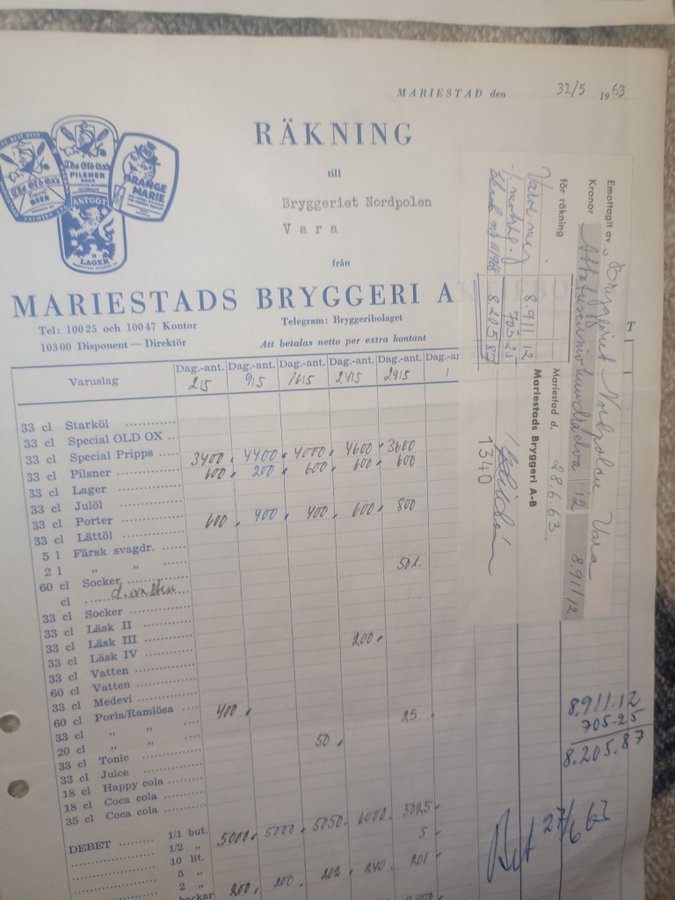 MARIESTAD den 31/5 1963
RÄKNING
till
Bryggeriet Nordpolen
Vara
från
MARIESTADS BRYGGERI A
Tel: 10025 och 10047 Kontor
Telegram: Bryggeribolaget
10300 Disponent — Direktör
Att betalas netto per extra kontant
The Old Ox's
PILSNER
BEER
ORANGE
MARIE
LAGER
Varuslag Dag.-ant. Dag.-ant. Dag.-ant. Dag.-ant. Dag.-ant. Dag.-an
2/5 9/5 16/5 24/5 29/5 1
33 cl Starköl
33 cl Special OLD OX
33 cl Special Pripps 3400 4400 4000 4600 3600
33 cl Pilsner 600 200 600 600 600
33 cl Lager
33 cl Julöl
33 cl Porter 600 400 400 600 800
33 cl Lättöl
5 l Färsk svagdr.
2 l " "
60 cl Socker
cl
33 cl Socker
33 cl Läsk II
33 cl Läsk III 200
33 cl Läsk IV
33 cl Vatten
60 cl Vatten
33 cl Medevi
60 cl Porla/Ramlösa 400
33 cl " " 25
20 cl " "
33 cl Tonic 50
33 cl Juice
18 cl Happy cola
18 cl Coca cola
35 cl Coca cola
DEBET 1/1 but. 5000 5000 5050 6000 5025
1/2 " 5
10 lit.
5 "
2 " 200 200 202 240 201
backar
Emottagit av Bryggeriet Nordpolen Vara
Kronor Åttatusenniohundraelva 12 8.911,12
för räkning
8.911 12
705 25
8.205 87
Mariestad d. 28.6.63
Mariestads Bryggeri A-B
1340
T
8.911.12
705-25
8.205.87
Bet 27/6 63